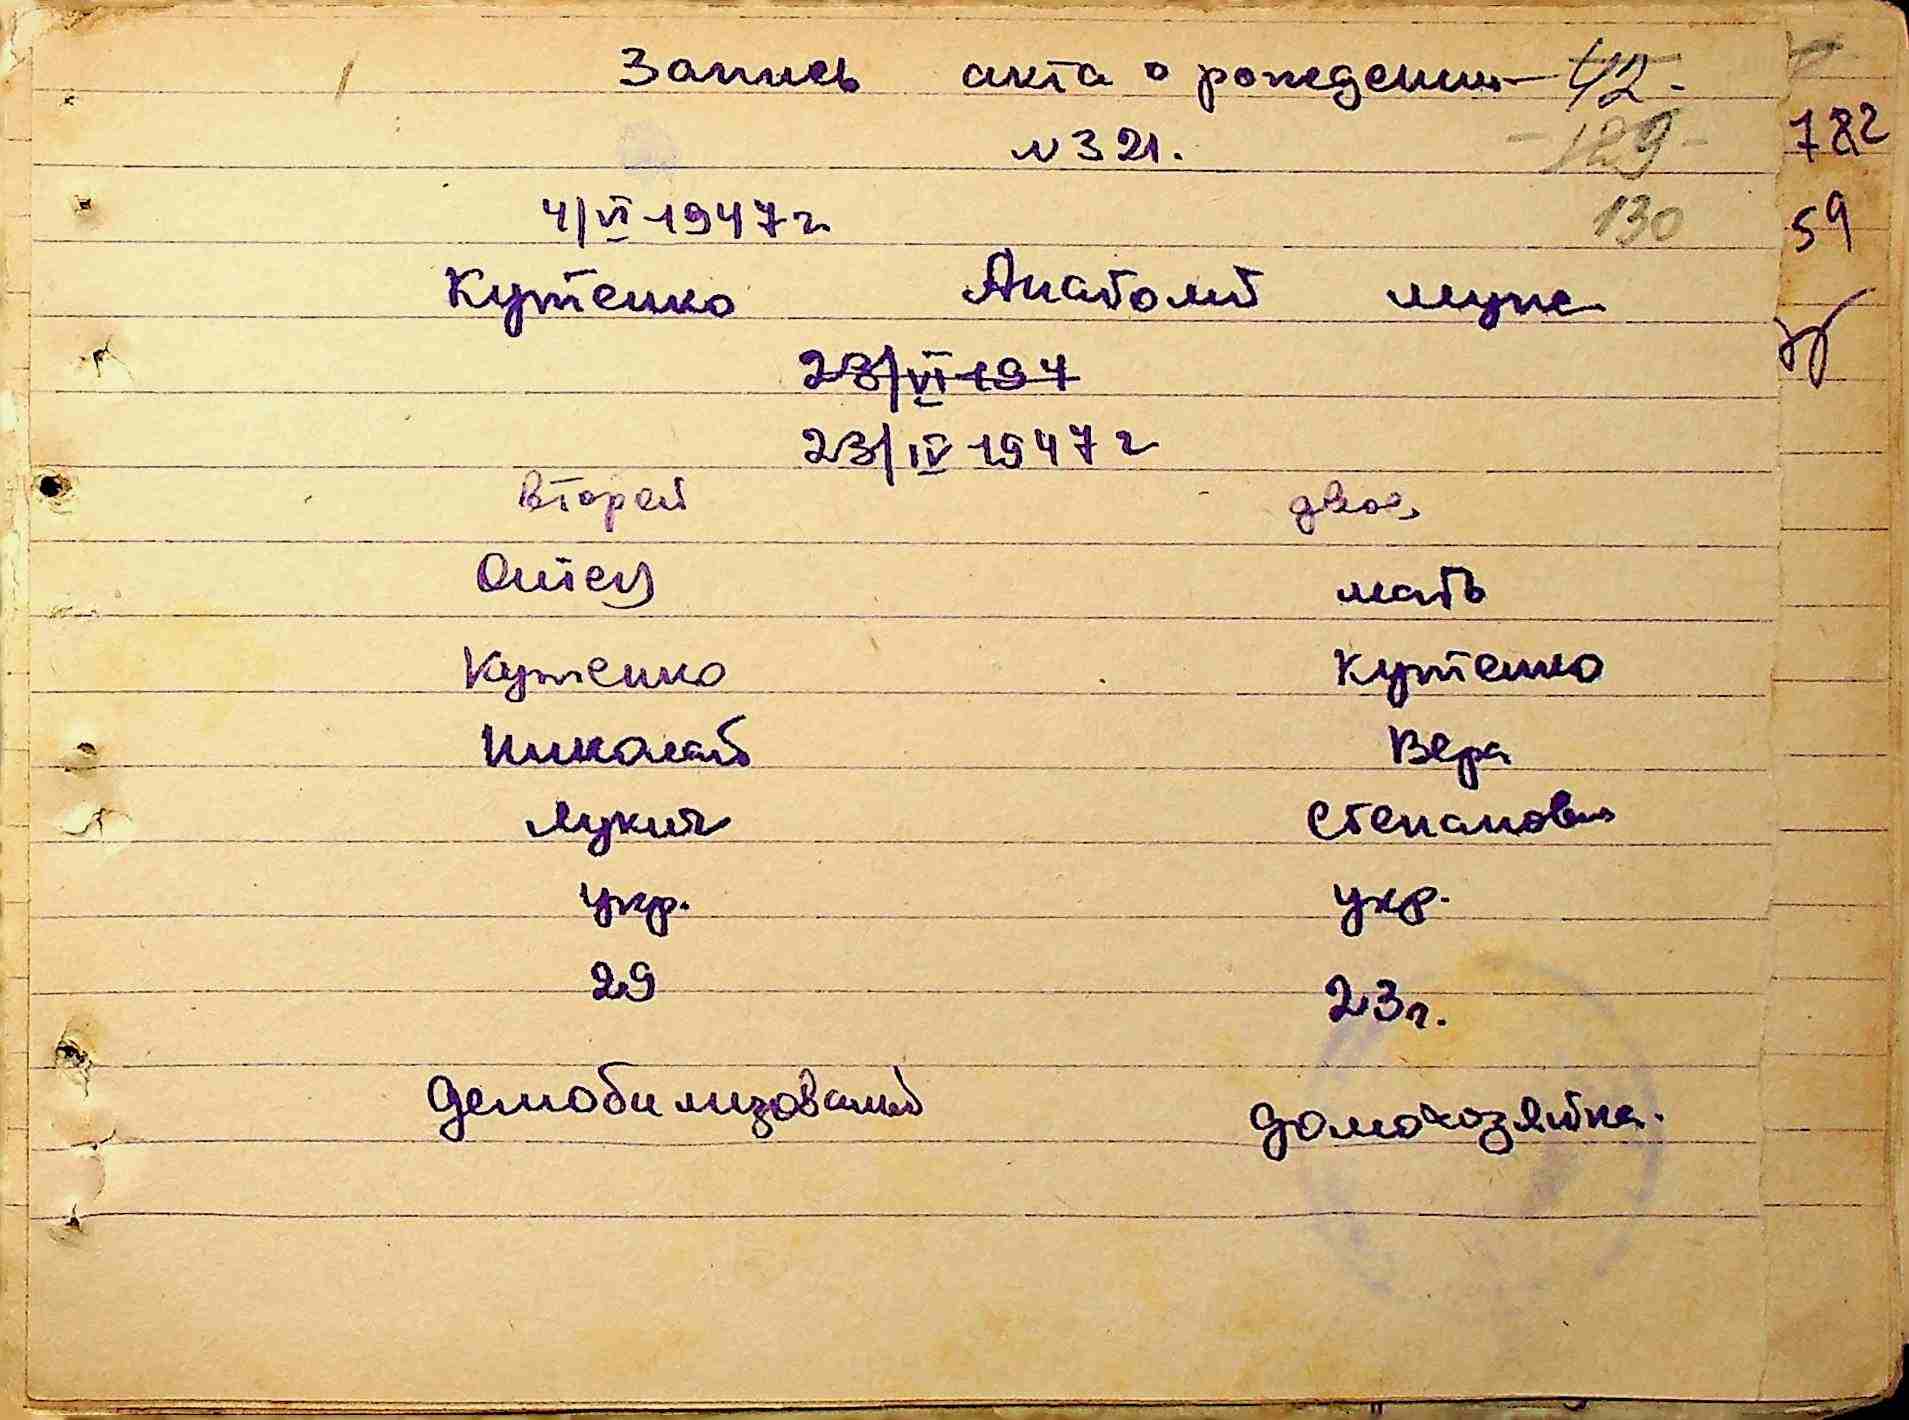 Запись акта о рождении 42.
N 321. -129-
4/VI 1947 г. 130
Кутенко Анатолий муж
23/VI 194
23/IV 1947 г
Второй двое
Отец мать
Кутенко Кутенко
Николай Вера
Лукич Степановна
укр. укр.
29 23 г.
демобилизованый домохозяйка.
782
59